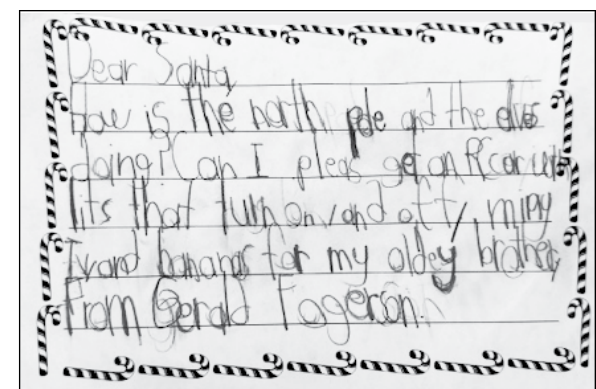 Dear Santa,
how is the north pole and the elves
doing? Can I pleas get an Rc car with
lits that turn on and off,
I want bananas for my oldey brother,
From Gerald Fagerson.